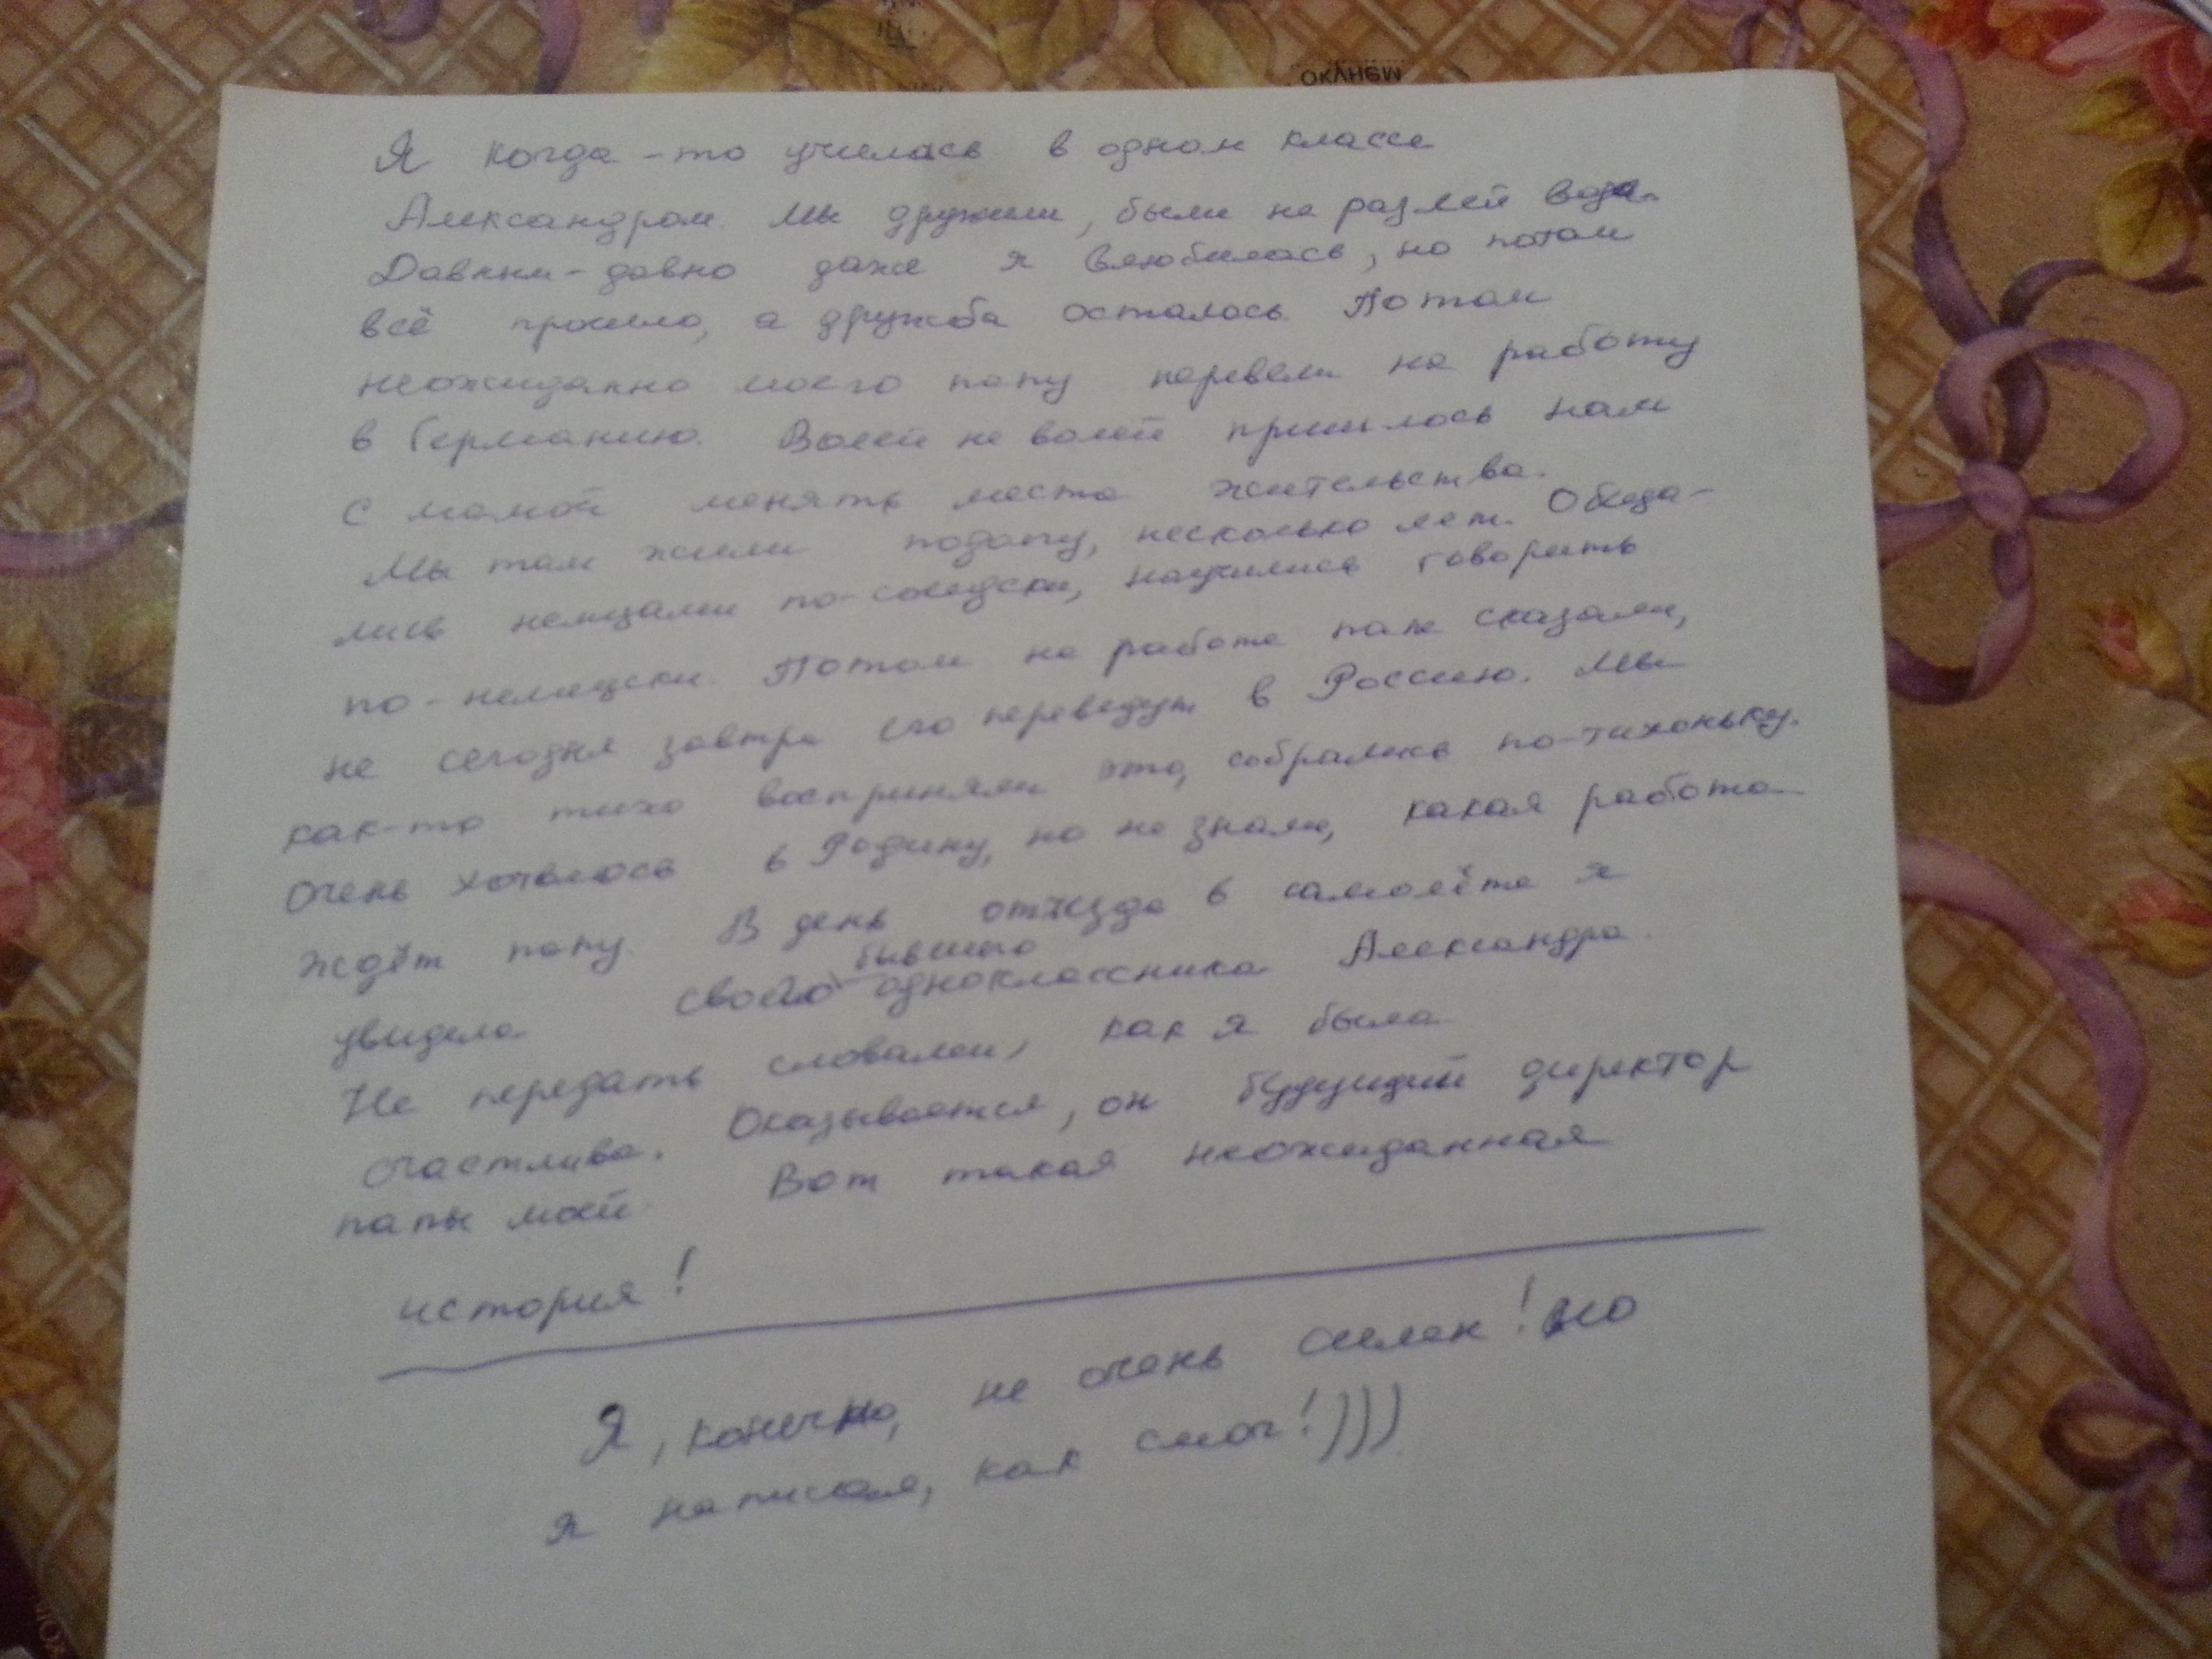 окунем
Я когда-то училась в одном классе
Александром. Мы дружили, были не разлей вода.
Давным-давно даже я влюбилась, но потом
всё прошло, а дружба осталась. Потом
неожиданно моего папу перевели на работу
в Германию. Волей не волей пришлось нам
с мамой менять место жительства.
Мы там жили подолгу, несколько лет. Обща-
лись немцами по-соседски, научились говорить
по-немецски. Потом на работе папе сказали,
не сегодня завтра его переведут в Россию. Мы
как-то тихо восприняли это, собрались по-тихоньку.
Очень хотелось в Родину, но не знали, какая работа
ждёт папу. В день отъезда в самолёте я
увидела своего бывшего одноклассника Александра.
Не передать словами, как я была
счастлива. Оказывается, он будущий директор
папы моей Вот такая неожиданная
история!
Я, конечно, не очень силен! но
я написала, как смог!)))